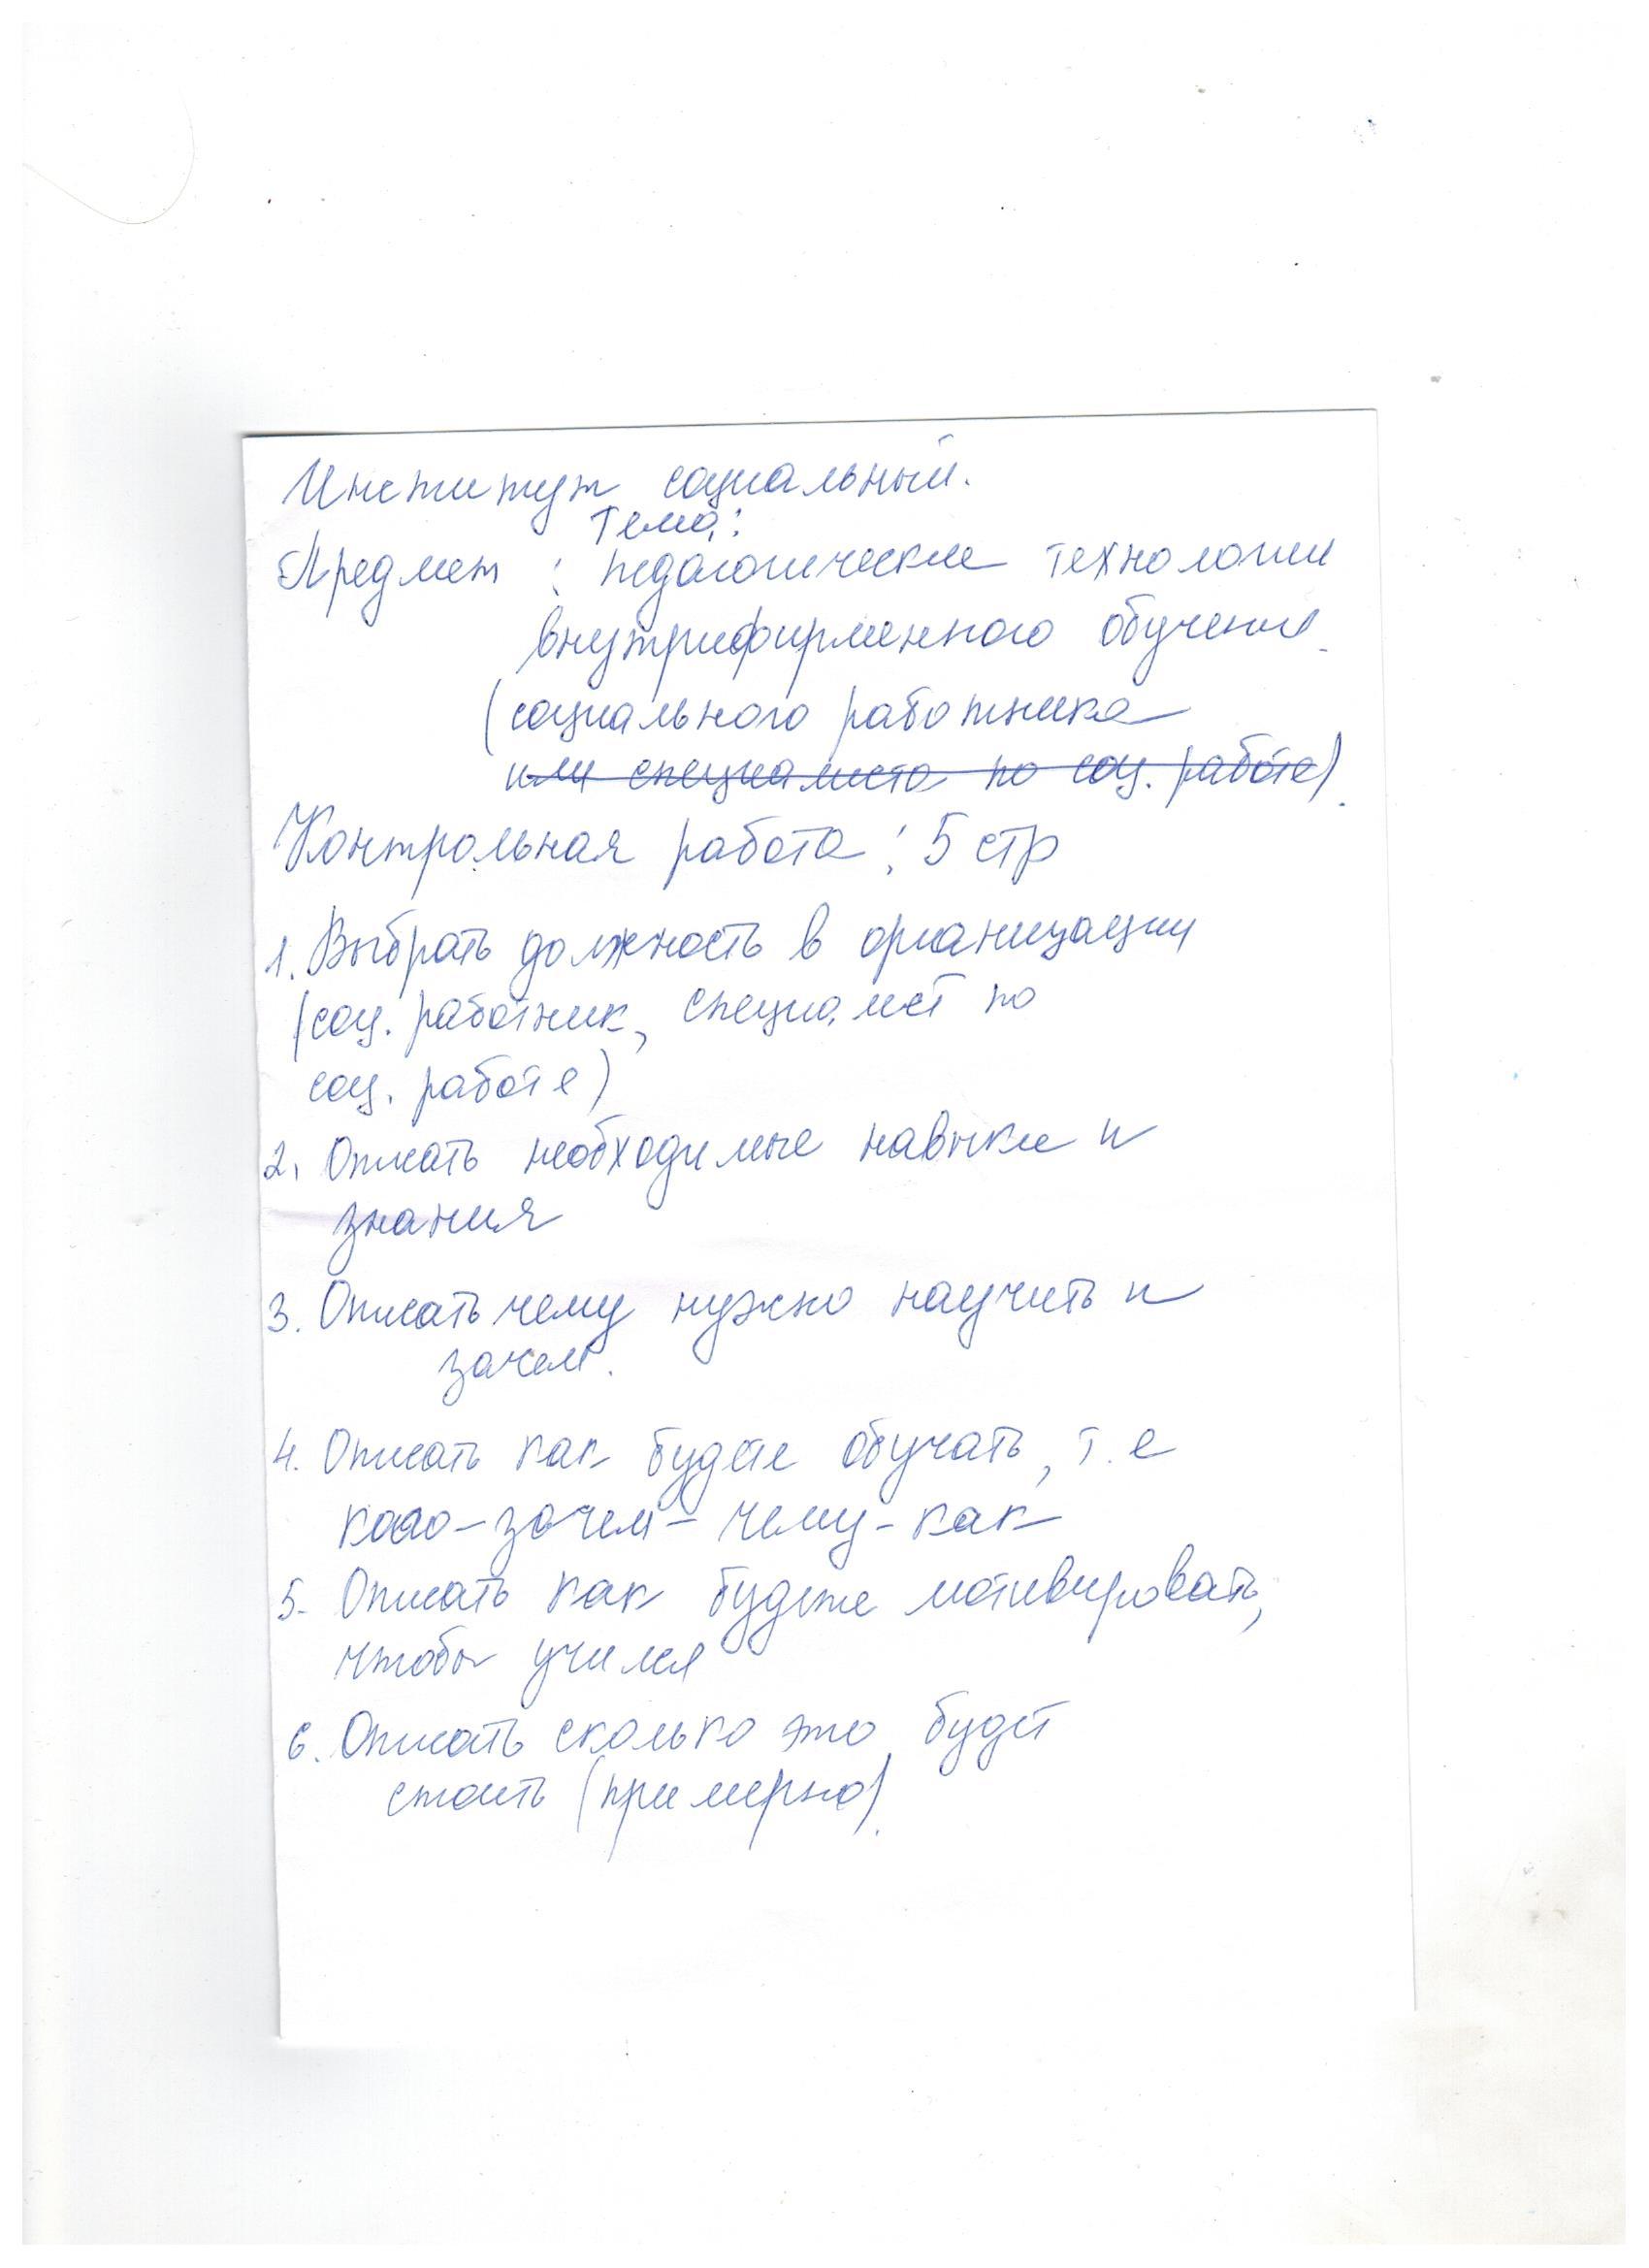 Институт социальный.
Тема:
Предмет : педагогические технологии
внутрифирменного обучения
(социального работника
или специалиста по соц. работе).
Контрольная работа: 5 стр
1. Выбрать должность в организации
(соц. работник, специалист по
соц. работе)
2. Описать необходимые навыки и
знания
3. Описать чему нужно научить и
зачем.
4. Описать как будете обучать, т.е
кого-зачем-чему-как
5. Описать как будете мотивировать,
чтобы учился
6. Описать сколько это будет
стоить (примерно).